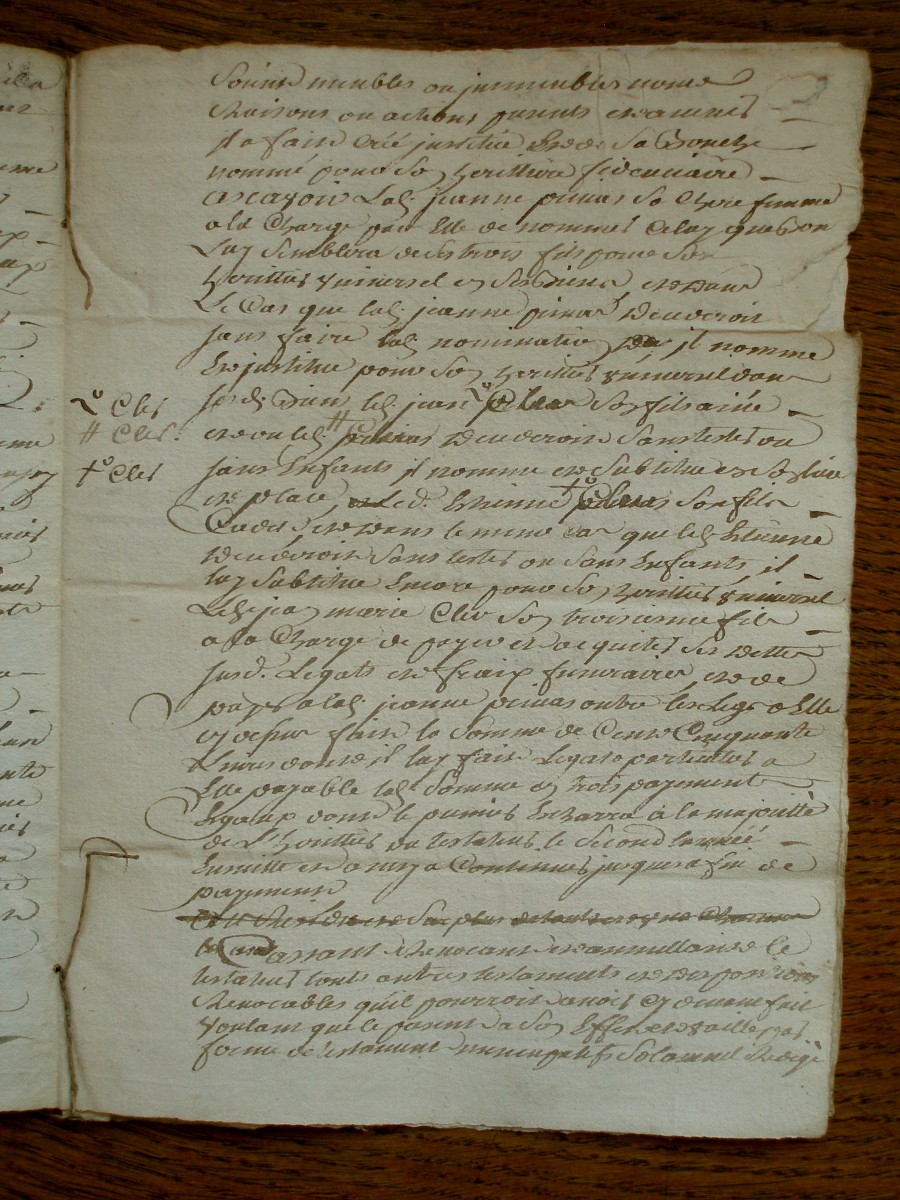 Soient meubles ou jmmeubles noms
Raisons ou actions presents et avenirs
il a fait créé jnstitué et de sa Bouche
nommé pour son heritiere fiduciaire
a scavoir lad. jeanne sa chere femme
a la Charge par Elle de nommer Celuy que Bon
Luy Semblera de ses trois fils pour son
heritier universel en ses Biens et dans
Le Cas que lad. jeanne decederoit
sans faire lad. nomination il nomme
et jnstitue pour son heritier universel
sesd. Biens led. jean son fils ainé
Clet
et ou led. decederoit sans tester ou
Clet
sans Enfants il nomme et substitue en son lieu
Clet
et place led. Etienne son fils
Cadet et dans le meme Cas que led. Etienne
decederoit sans tester ou sans Enfants il
luy substitue Encore pour son heritier universel
Led. jean marie Clet son troisieme fils
a la Charge de payer et acquiter ses dettes
susd. Legats et fraix funeraires et de
payer a lad. jeanne outre les legs a Elle
cy dessus fait la somme de Cent Cinquante
Livres dont il luy fait Legat particulier a
Elle payable lad. somme en trois payements
Egaux dont le premier Echerra à la majorité
de L'heritier du testateur le second
Ensuitte et ainsy a Continuer jusques a fin de
payement
Cassant Revocant et annullant le
testateur touts autres testaments et dispositions
Revocables qu'il pourroit avoir Cy devant fait
Voulant que le present a son Effet et vaille par
forme de testament nuncupatif Solemnel Redigé